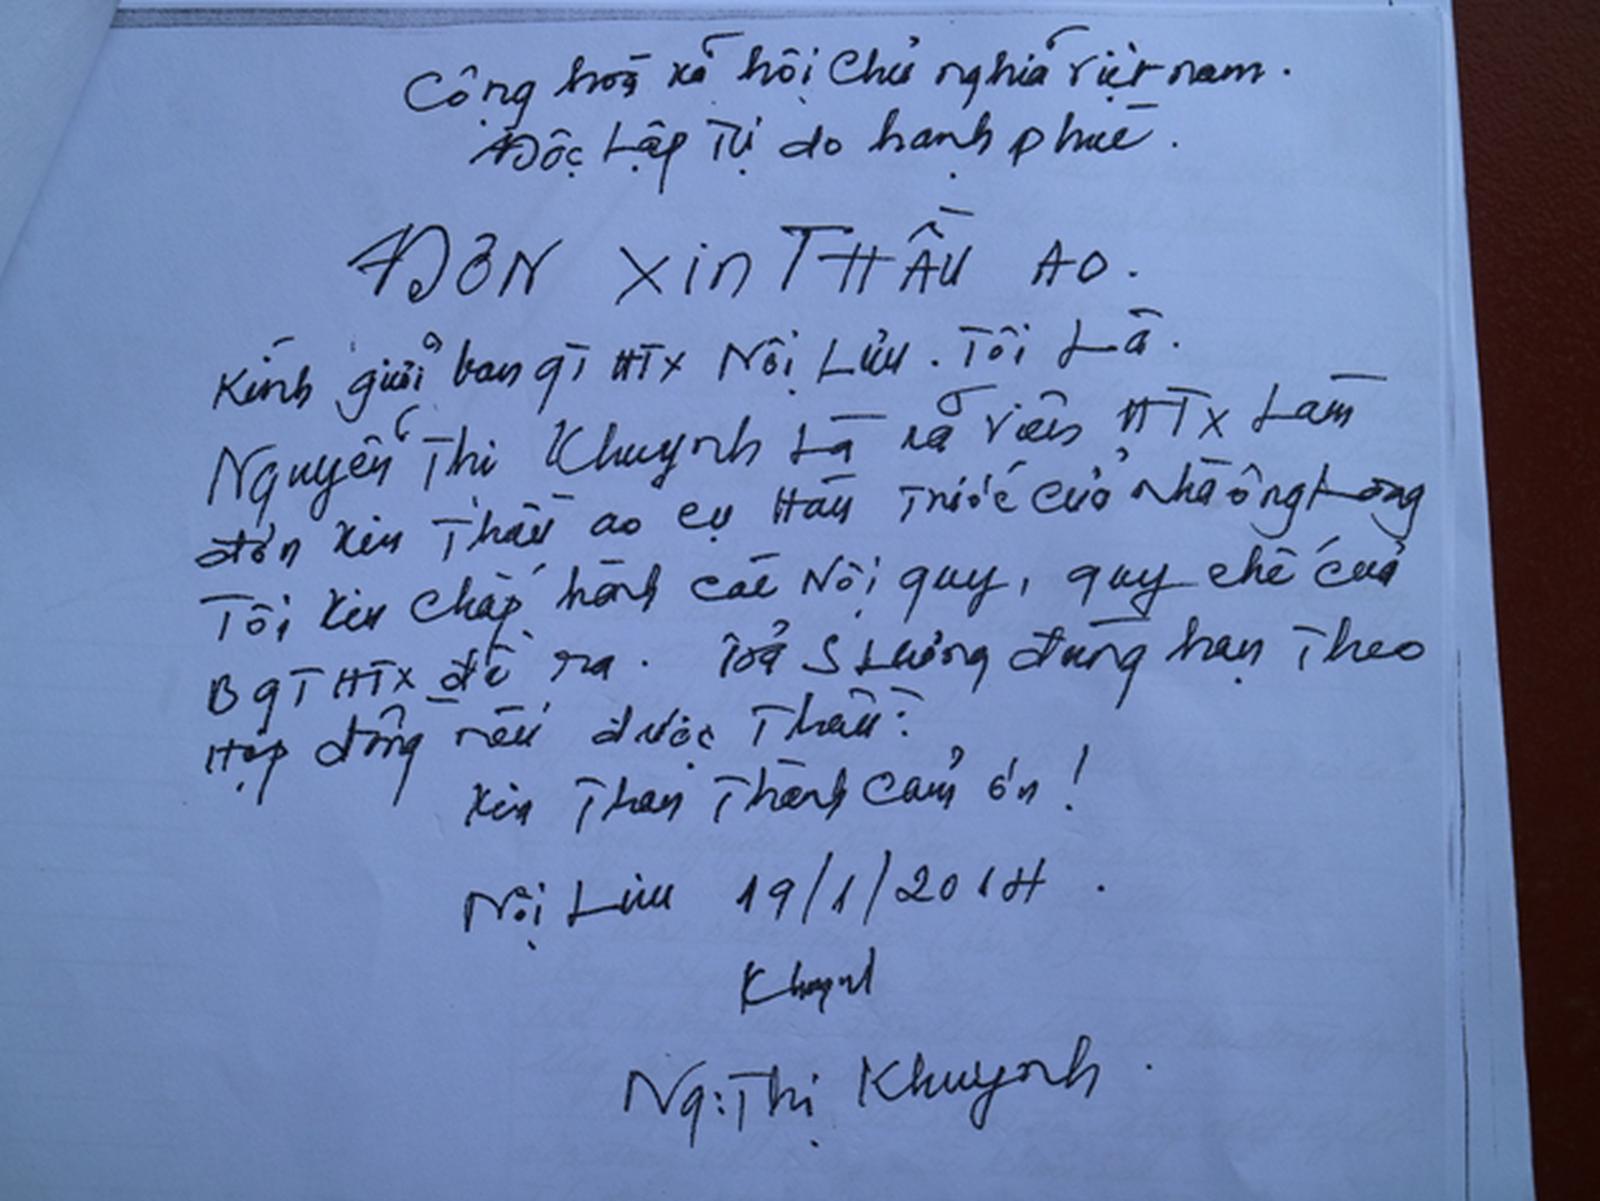 Cộng hoà xã hội Chủ nghĩa Việt nam.
Độc Lập Tự do hạnh phúc.
ĐƠN Xin THẦU AO.
Kính gửi ban QT HTX Nội Lưu. Tôi Là.
Nguyễn Thị Khuynh Là xã viên HTX Làm
đơn xin Thầu ao cụ Hán Trước cửa Nhà ông Long
Tôi xin chấp hành các Nội quy, quy chế của
BQT HTX đề ra. Trả S Lượng đúng hạn Theo
Hợp đồng nếu được Thầu:
Xin Thân Thành Cảm ơn!
Nội Lưu 19/1/2014.
Khuynh
Ng: Thị Khuynh.